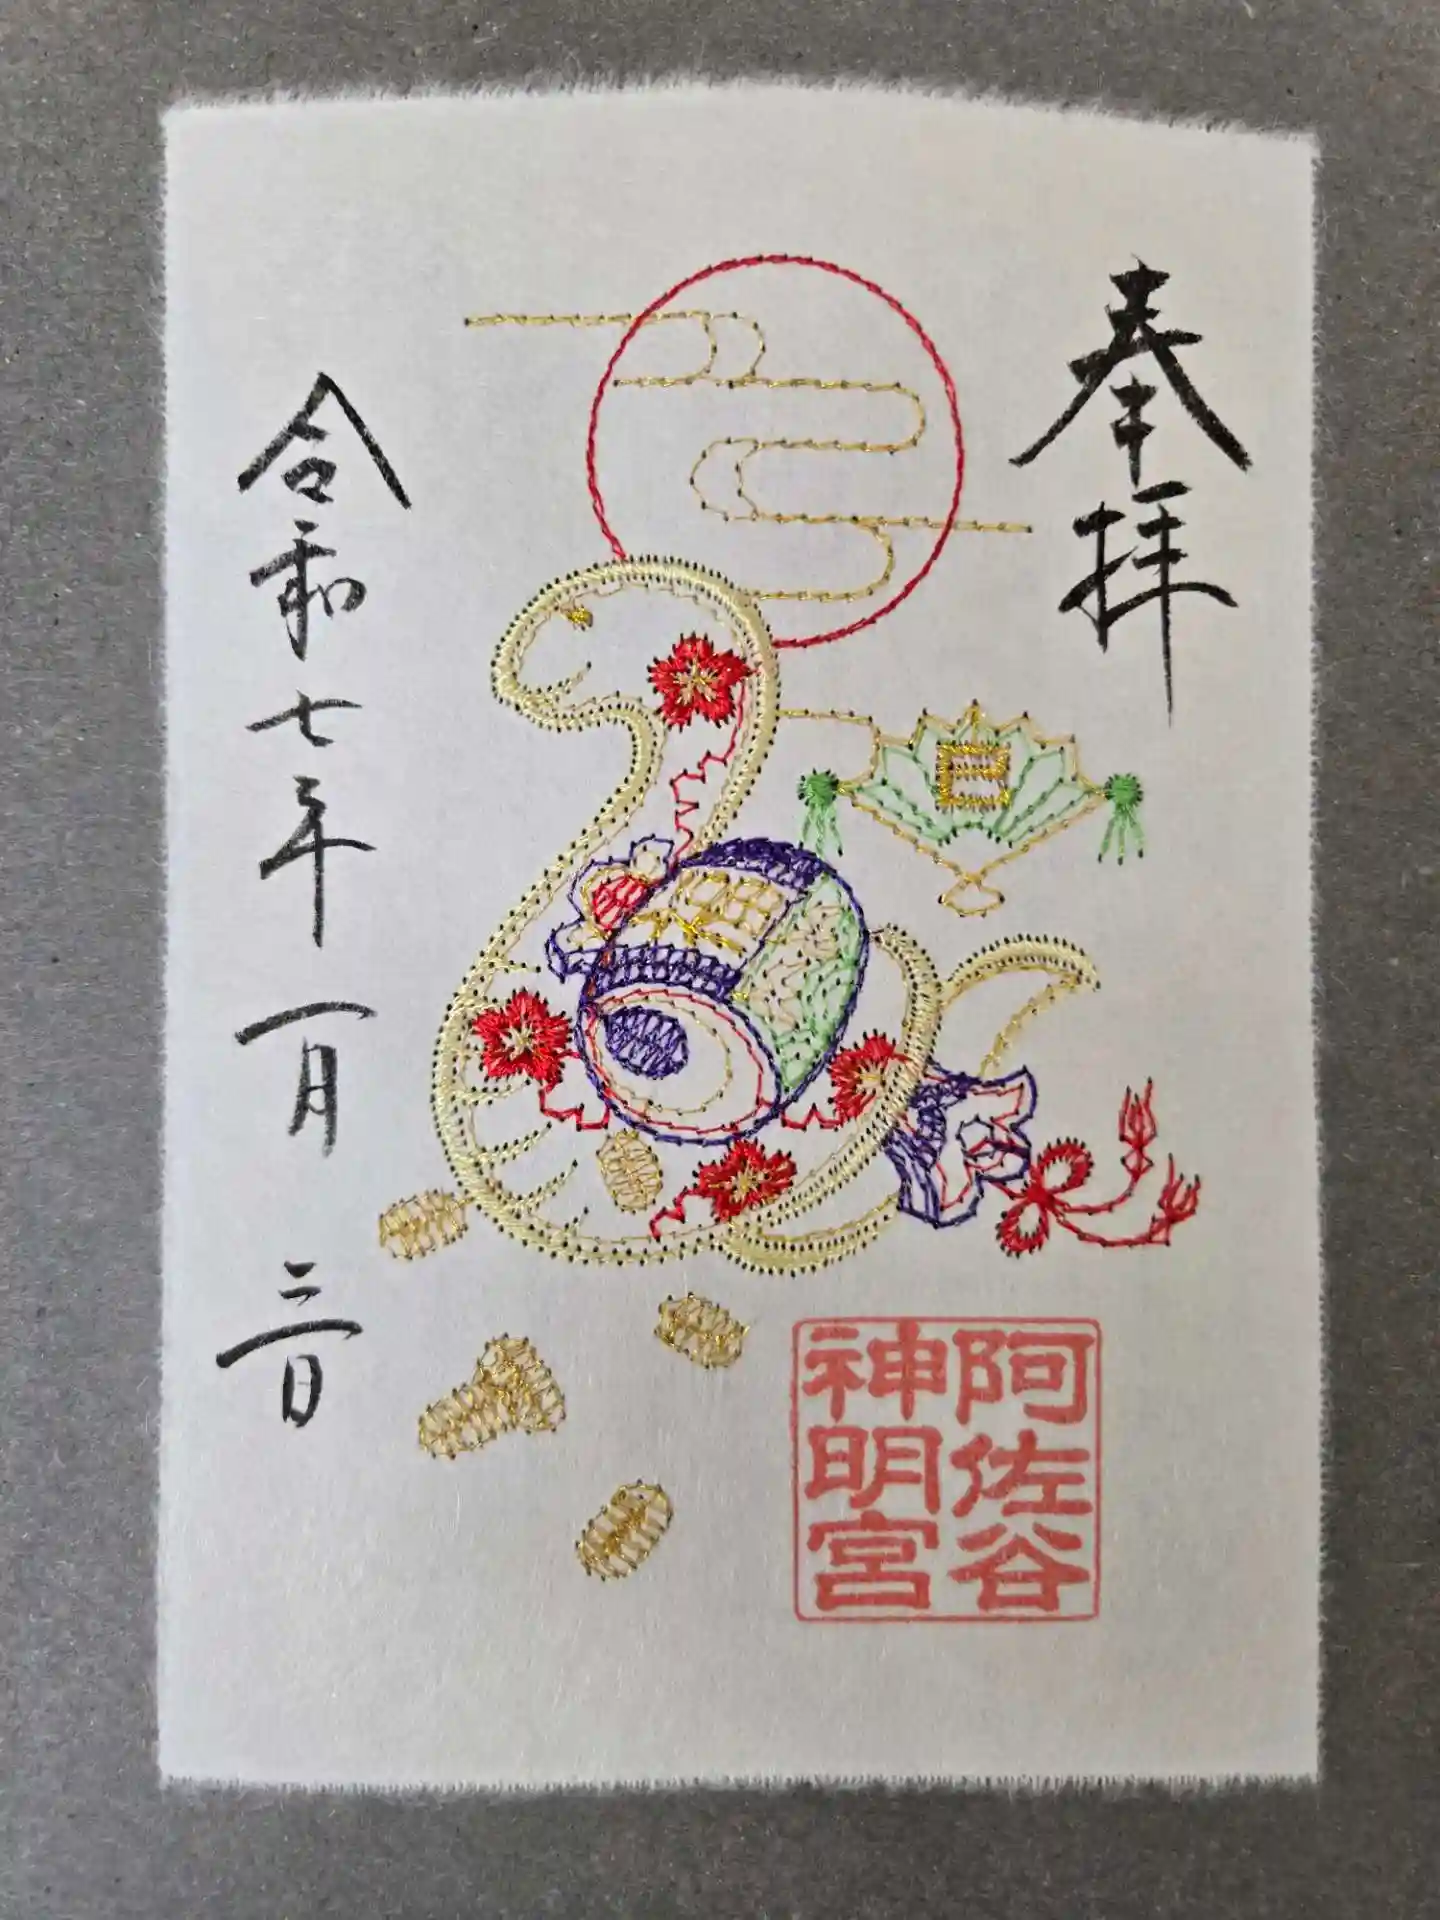 奉拝
日
令和七年一月三日
阿佐谷
神明宮